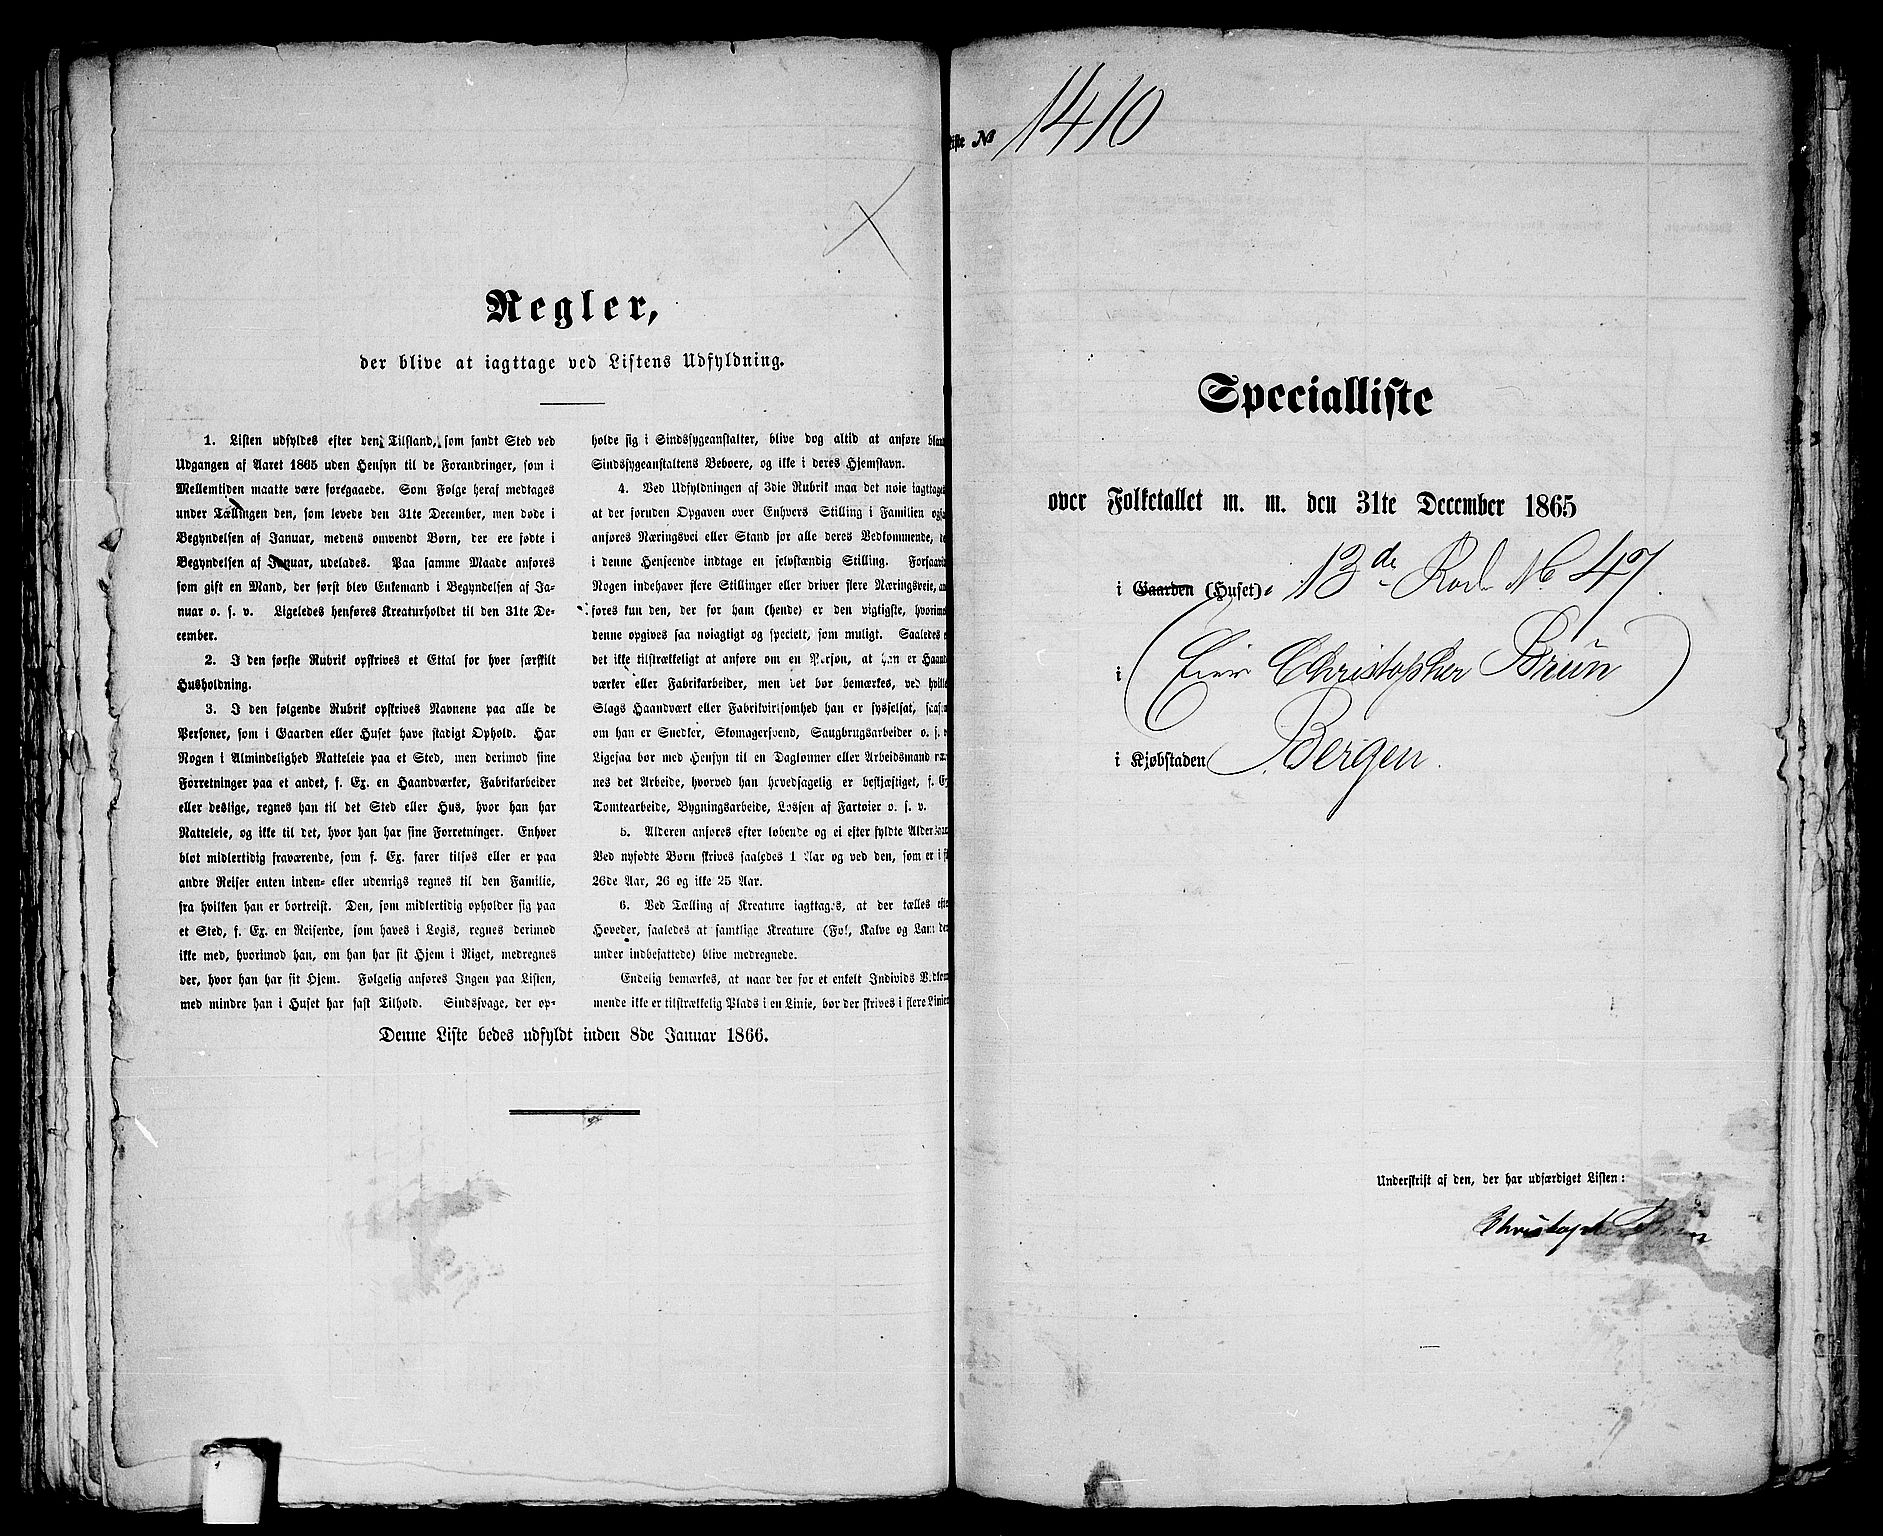 Regler,
der blive at iagttage ved Listens Udfyldning.
1. Listen udfyldes efter den Tilstand, som fandt Sted ved
Udgangen af Aaret 1865 uden Hensyn til de Forandringer, som i
Mellemtiden maatte være foregaaede. Som Følge heraf medtages
under Tællingen den, som levede den 31te December, men døde i
Begyndelsen af Januar, medens omvendt Børn, der ere fødte i
Begyndelsen af Januar, udelades. Paa samme Maade anføres
som gift en Mand, der først blev Enkemand i Begyndelsen af Ja-
nuar o. s. v. Ligeledes henføres Kreaturholdet til den 31te De-
cember.
2. I den første Rubrik opskrives et Ettal for hver særskilt
Husholdning.
3. I den følgende Rubrik opskrives Navnene paa alle de
Personer, som i Gaarden eller Huset have stadigt Ophold. Har
Nogen i Almindelighed Natteleie paa et Sted, men derimod sine
Forretninger paa et andet, f. Ex. en Haandværker, Fabrikarbeider
eller deslige, regnes han til det Sted eller Hus, hvor han har
Natteleie, og ikke til det, hvor han har sine Forretninger. Enhver
blot midlertidig fraværende, som f. Ex. farer tilsøs eller er paa
andre Reiser enten inden- eller udenrigs regnes til den Familie,
fra hvilken han er bortreist. Den, som midlertidig opholder sig paa
et Sted, f. Ex. en Reisende, som haves i Logis, regnes derimod
ikke med, hvorimod han, om han har sit Hjem i Riget, medregnes
der, hvor han har sit Hjem. Følgelig anføres Ingen paa Listen,
med mindre han i Huset har fast Tilhold. Sindssvage, der op-
holde sig i Sindssygeanstalter, blive dog altid at anføre
Sindssygeanstaltens Beboere, og ikke i deres Hjemstavn.
4. Ved Udfyldningen af 3die Rubrik maa det nøie iagttages
at der foruden Opgaven over Enhvers Stilling i Familien
anføres Næringsvei eller Stand for alle deres Vedkommende,
i denne Henseende indtage en selvstændig Stilling. Forsaavidt
Nogen indehaver flere Stillinger eller driver flere Næringsveie,
føres kun den, der for ham (hende) er den vigtigste, hvorimod
denne opgives saa nøiagtigt og specielt, som muligt. Saaledes
det ikke tilstrækkeligt at anføre om en Person, at han er Haand
værker eller Fabrikarbeider, men det bør bemærkes, ved hvilket
Slags Haandværk eller Fabrikvirksomhed han er sysselsat,
om han er Snedker, Skomagersvend, Saugbrugsarbeider o. s.
Ligesaa bør med Hensyn til en Dagløner eller Arbeidsmand
nes det Arbeide, hvorved han hovedsagelig er beskjæftiget, f. Ex
Tomtearbeide, Bygningsarbeide, Lossen af Fartøier o. s. v.
5. Alderen anføres efter løbende og ei efter fyldte
Ved nyfødte Børn skrives saaledes 1 Aar og ved den, som er i
26de Aar, 26 og ikke 25 Aar.
6. Ved Tælling af Kreature iagttages, at der tælles
Hoveder, saaledes at samtlige Kreature (Føl, Kalve og
under indbefattede) blive medregnede.
Endelig bemærkes, at naar der for et enkelt Individs
mende ikke er tilstrækkelig Plads i en Linie, bør der skrives i flere Linier
Denne Liste bedes udfyldt inden 8de Januar 1866.
№ 1410
Specialliste
over Folketallet m. m. den 31te December 1865
i Gaarden (Huset): 13de Rode No 47.
i (Eier Christopher Brun)
i Kjøbstaden Bergen.
Underskrift af den, der har udfærdiget Listen:
Christopher Brun